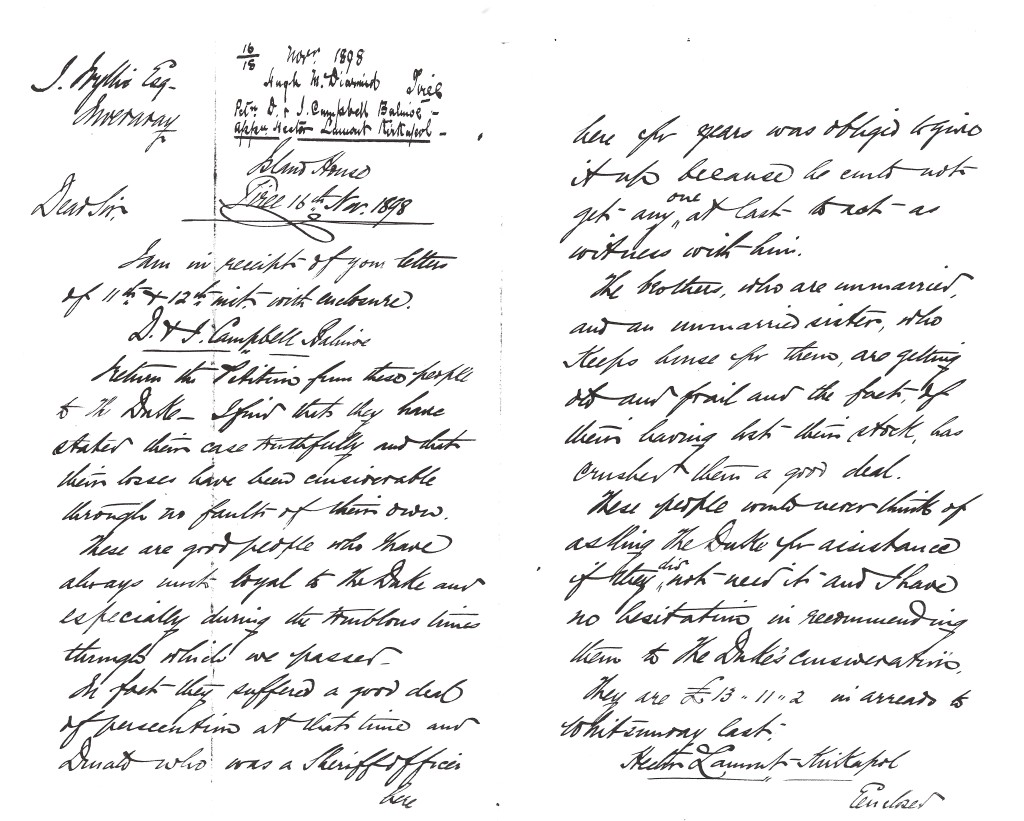 J. Wyllie Esq.
Inveraray
16/18 Novr. 1898
Hugh McDiarmid Tiree
Petn. D. & J. Campbell Balinoe -
Appn. Hector Lamont Kirkapol -
Island House
Tiree 16th Nov. 1898
Dear Sir
I am in receipt of your letters
of 11th & 12th inst. with enclosure.
D. & J. Campbell Balinoe
Return the Petition from these people
to the Duke - I find that they have
stated their case truthfully and that
their losses have been considerable
through no faults of their own.
These are good people who have
always most loyal to the Duke and
especially during the troublous times
through which we passed.
In fact they suffered a good deal
of persecution at that time and
Donald who was a Sheriff officer
here
here for years was obliged to give
it up because he could not
get any one at last to act as
witness with him.
The brothers, who are unmarried,
and an unmarried sister, who
keeps house for them, are getting
old and frail and the fact, of
their having lost their stock, has
crushed them a good deal.
These people would never think of
asking the Duke for assistance
if they did not need it and I have
no hesitation in recommending
them to the Duke's consideration.
They are £13 " 11 " 2 in arrears to
Whitsunday last.
Hector Lamont Kirkapol
Enclosed